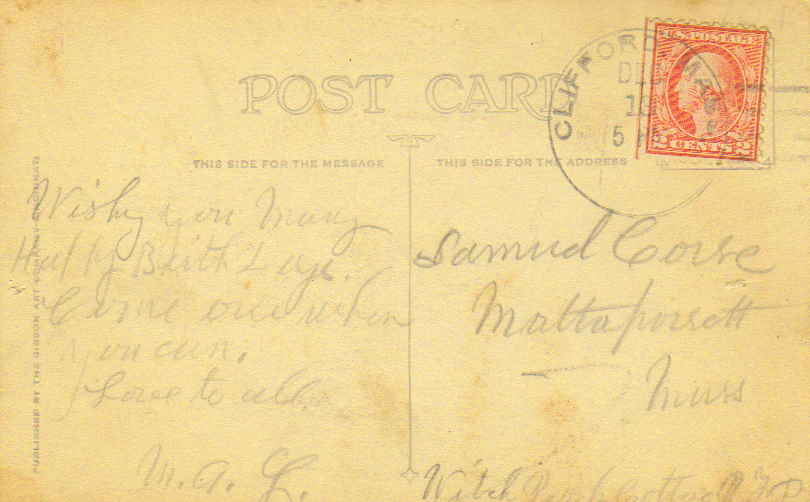 POST CARD
THIS SIDE FOR THE MESSAGE
THIS SIDE FOR THE ADDRESS
CLIFFORD MASS
DEC
5
U.S. POSTAGE
2 CENTS 2
Wishg you Many
Happy Birth Days.
Come over when
you can.
Love to all.
M. A. L.
Samuel Corse
Mattapoisett
Mass
PUBLISHED BY THE GIBSON ART COMPANY, CINCINNATI